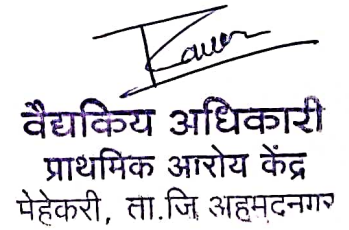 वैद्यकिय अधिकारी
प्राथमिक आरोय केंद्र
पेहेकरी, ता.जि अहमदनगर